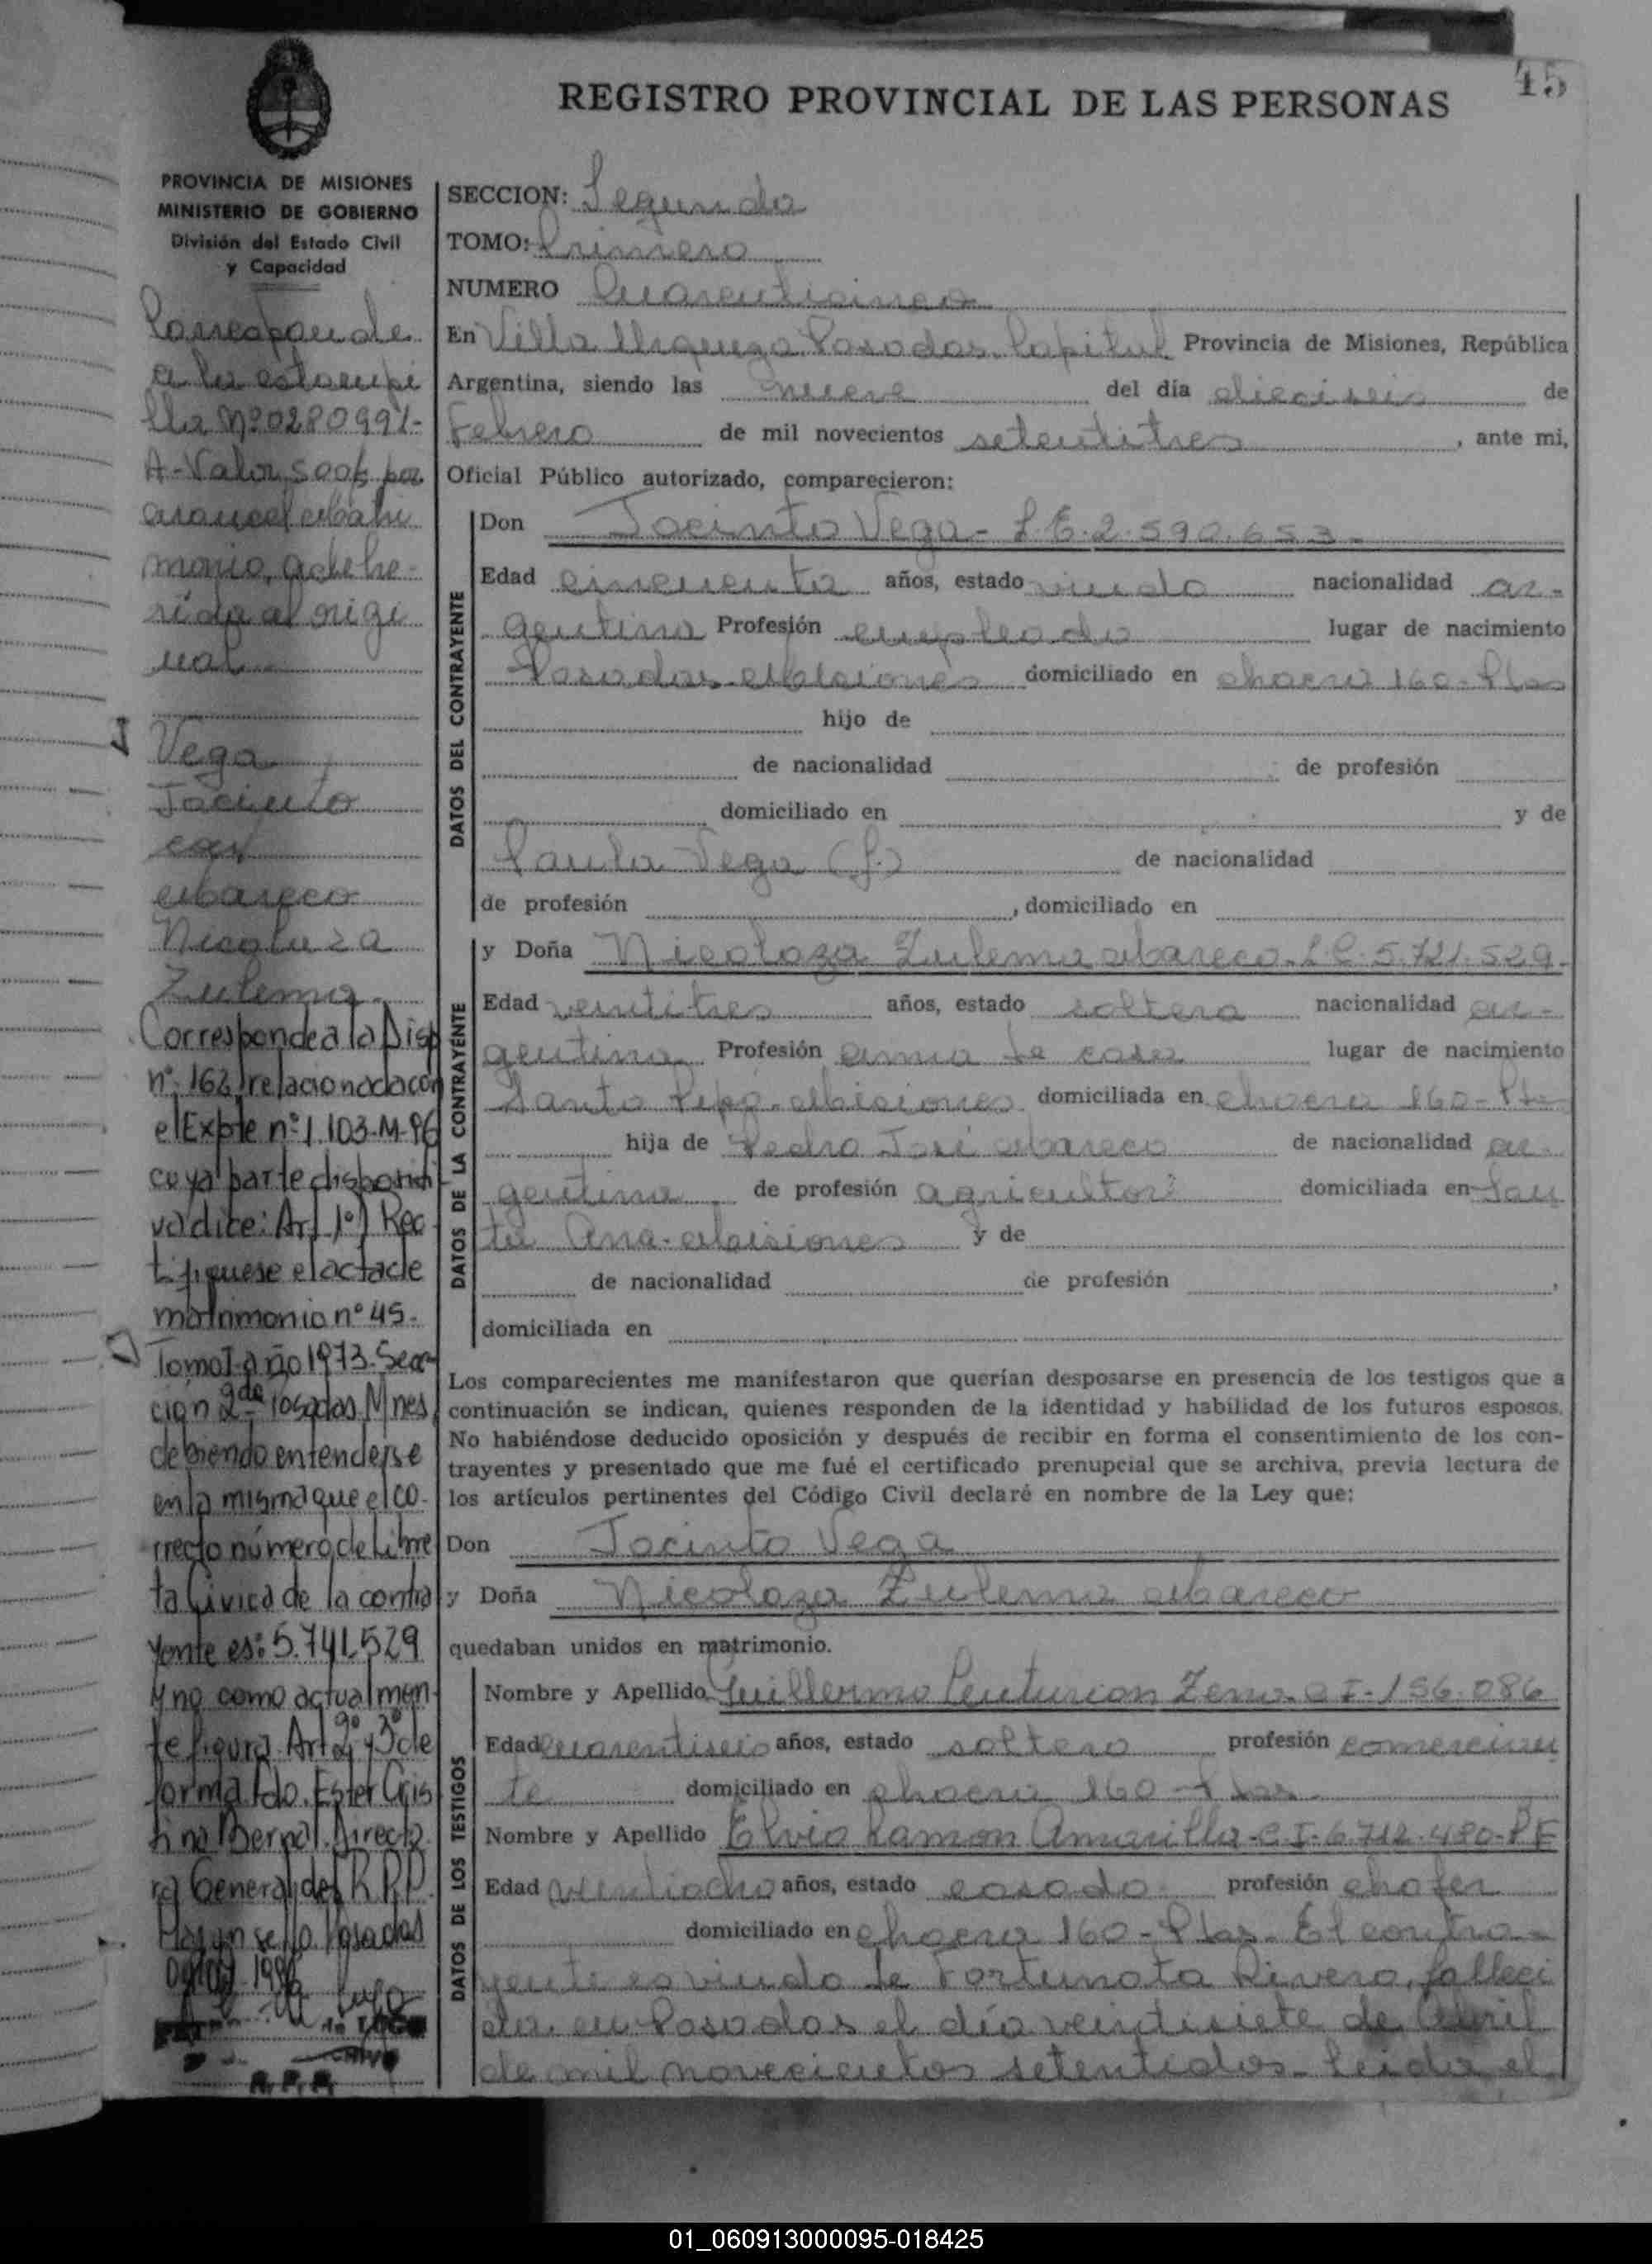 45
REGISTRO PROVINCIAL DE LAS PERSONAS
PROVINCIA DE MISIONES
MINISTERIO DE GOBIERNO
División del Estado Civil
y Capacidad
Corresponde
a la estampi
lla Nº 0280991-
A-Valor 500$ por
arancel Matri
monio, adhe-
rida al origi
nal
Vega
Jacinto
con
Mareco
Nicolaza
Zulema
Corresponde a la Disp
nº 162 relacionada con
el Expte nº 1.103-M-96
cuya parte disposi
va dice: Art 1º) Rec
tifiquese el acta de
matrimonio nº 45-
Tomo I-año 1973-Sec
cion 2da Posadas Mnes
debiendo entenderse
en la misma que el co-
rrecto número de Libre
ta Civica de la contra
yente es: 5.741.529
y no como actualmen-
te figura. Art 2º y 3º de
forma. Fdo. Ester Cris
tina Bernal. Directo
ra General del R.P.P.
Hay un sello. Posadas
SECCION: Segunda
TOMO: Primero
NUMERO Cuarenticinco
En Villa Urquiza Posadas Capital Provincia de Misiones, República
Argentina, siendo las nueve del día dieciseis de
Febrero de mil novecientos setentitres, ante mi,
Oficial Público autorizado, comparecieron:
DATOS DEL CONTRAYENTE
Don Jacinto Vega- L.E.2.590.653-
Edad cincuenta años, estado viudo nacionalidad ar-
gentina Profesión empleado lugar de nacimiento
Posadas-Misiones domiciliado en chacra 160-Pdas
hijo de
de nacionalidad de profesión
domiciliado en y de
Paula Vega (f.) de nacionalidad
de profesión , domiciliado en
DATOS DE LA CONTRAYENTE
y Doña Nicolaza Zulema Mareco-L.C.5.721.529-
Edad veintitres años, estado soltera nacionalidad ar-
gentina Profesión ama de casa lugar de nacimiento
Santo Pipó-Misiones domiciliada en chacra 160-Pdas
hija de Pedro José Mareco de nacionalidad ar-
gentina de profesión agricultor domiciliada en San
ta Ana-Misiones y de
de nacionalidad de profesión ,
domiciliada en
Los comparecientes me manifestaron que querían desposarse en presencia de los testigos que a
continuación se indican, quienes responden de la identidad y habilidad de los futuros esposos.
No habiéndose deducido oposición y después de recibir en forma el consentimiento de los con-
trayentes y presentado que me fué el certificado prenupcial que se archiva, previa lectura de
los artículos pertinentes del Código Civil declaré en nombre de la Ley que:
Don Jacinto Vega
y Doña Nicolaza Zulema Mareco
quedaban unidos en matrimonio.
DATOS DE LOS TESTIGOS
Nombre y Apellido Guillermo Centurion Zeno-C I-156.086
Edad cuarentiseis años, estado soltero profesión comercian
te domiciliado en chacra 160-Pdas.
Nombre y Apellido Elvio Ramon Amarilla-C.I-6.712.480-PF
Edad veintiocho años, estado casado profesión chofer
domiciliado en chacra 160-Pdas- El contra-
yente es viudo de Fortunata Rivero, falleci
da en Posadas el día veintisiete de Abril
de mil novecientos setentidos- Leida el
01_060913000095-018425